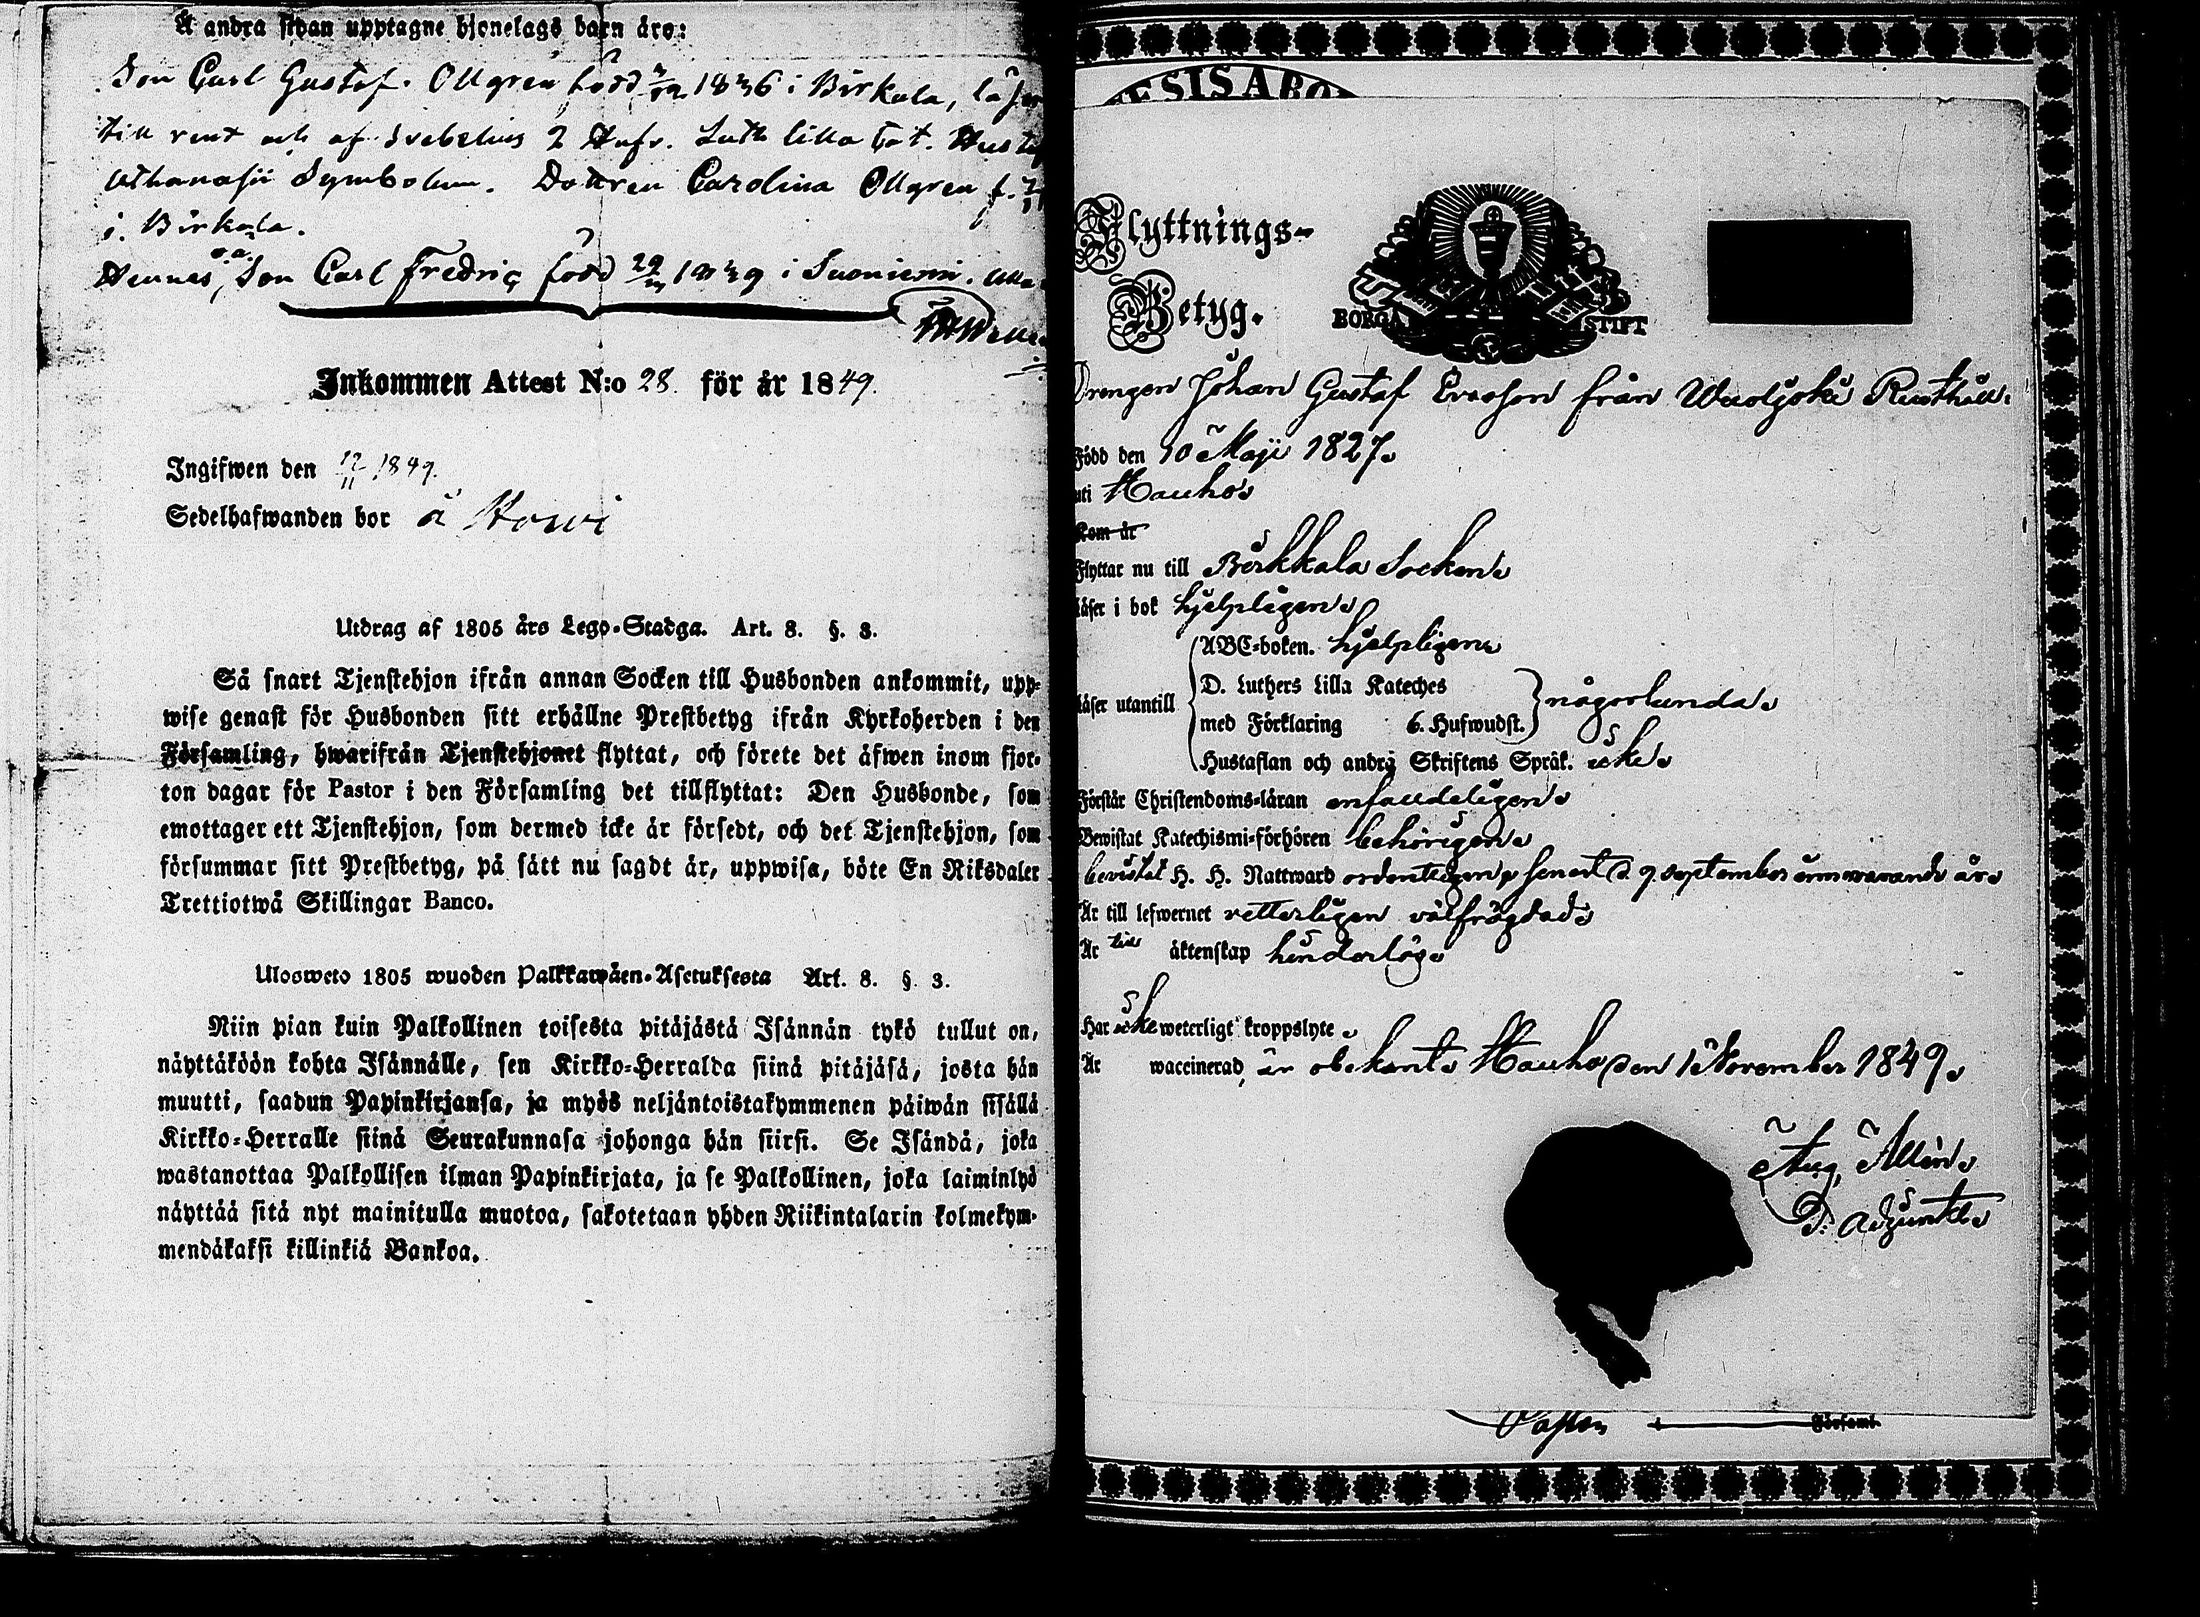 Å andra sidan upptagne hjonelags barn äro:
Son Carl Gustaf Ollgren född 1836 i Birkala, läser
till rent och af Svebelius 2 Hufv. Luth lilla Cat. Hust
Athanasii Symbolum. Dottren Carolina Ollgren f.
i Birkala.
Hennes o.ä. Son Carl Fredric född 1849 i Suoniemi.
Inkommen Attest N:o 28 för år 1849.
Ingifwen den 12/11 1849.
Sedelhafwanden bor å
Utdrag af 1805 års Lego-Stadga. Art. 8. §. 3.
Så snart Tjenstehjon ifrån annan Socken till Husbonden ankommit, upp-
wise genast för Husbonden sitt erhållne Prestbetyg ifrån Kyrkoherden i den
Församling, hwarifrån Tjenstehjonet flyttat, och förete det äfwen inom fjor-
ton dagar för Pastor i den Församling det tillflyttat: Den Husbonde, som
emottager ett Tjenstehjon, som dermed icke är försedt, och det Tjenstehjon, som
försummar sitt Prestbetyg, på sätt nu sagdt är, uppwisa, böte En Riksdaler
Trettiotwå Skillingar Banco.
Ulosweto 1805 wuoden Palkkawäen-Asetuksesta Art. 8. §. 3.
Niin pian kuin Palkollinen toisesta pitäjästä Isännän tykö tullut on,
näyttäköön kohta Isännälle, sen Kirkko-Herralda siinä pitäjäsä, josta hän
muutti, saadun Papinkirjansa, ja myös neljäntoistakymmenen päiwän sisällä
Kirkko-Herralle siinä Seurakunnasa johonga hän siirsi. Se Isändä, joka
wastanottaa Palkollisen ilman Papinkirjata, ja se Palkollinen, joka laiminlyö
näyttää sitä nyt mainitulla muotoa, sakotetaan yhden Riikintalarin kolmekym-
mendäkaksi killinkiä Bankoa.
Flyttnings-
Betyg.
BORGÅ STIFT
Drengen Johan Gustaf Ersson från Wuoljoki Rusthåll.
Född den 10 Maji 1827.
uti Hauho
Kom år
Flyttar nu till Birkkala Socken
läser i bok hjelpligen
ABC-boken. hjelpligen
D. Luthers Lilla Kateches
läser utantill
med Förklaring 6. Hufwudst. någorlunda
Hustaflan och andra Skriftens Språk. icke
Förstår Christendoms-läran enfaldeligen
Bewistat Katechismi-förhören behörigen
bevistat H. H. Nattward ordentligen, senast d. 9 september innevarande år
Är till lefwernet retterligen välfrägdad
Är till äktenskap hinderlös
Har icke weterligt kroppslyte
Är waccinerad, är obekant. Hauho den 1 November 1849.
Aug. Allén
D. Adjunkt
Pastor Församl.